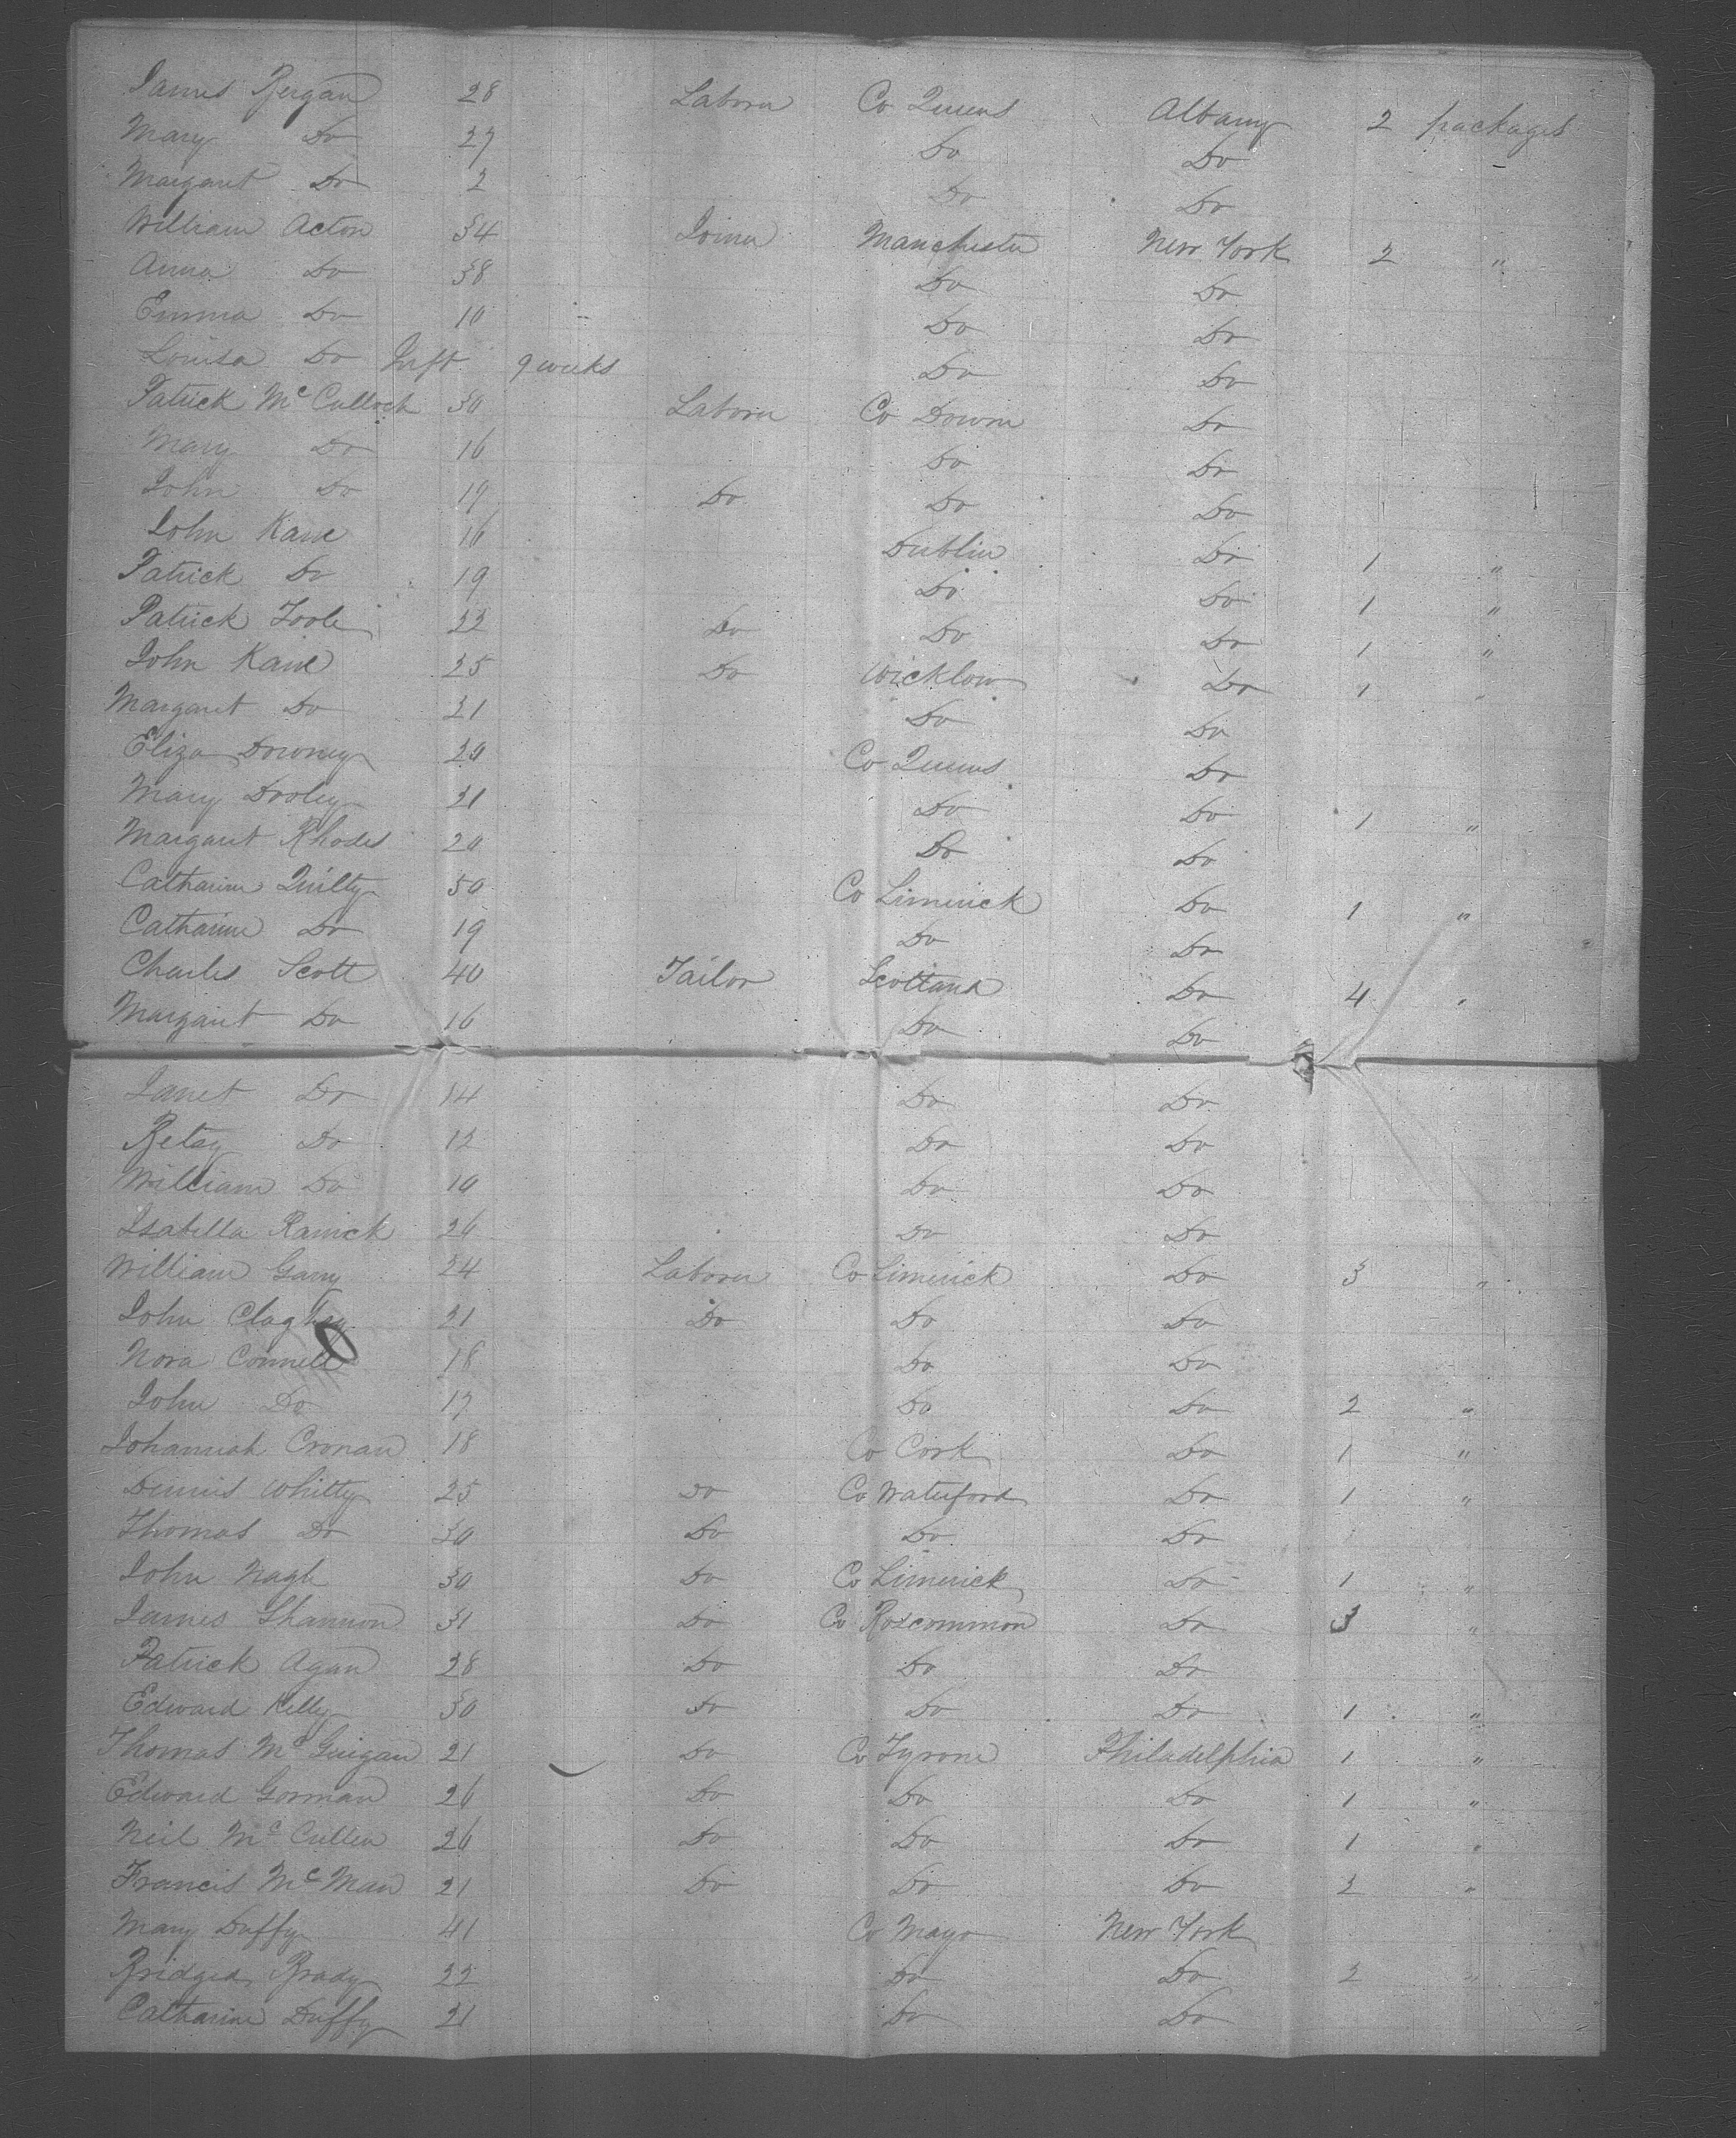 James Bergan 28 Laborer Co Queens Albany 2 packages
Mary Do 27 Do Do "
Margaret Do 2 Do Do
William Acton 34 Joiner Manchester New York 2 "
Anna Do 38 Do Do
Emma Do 10 Do Do
Louisa Do Inft 9 weeks Do Do
Patrick McCulloch 30 Laborer Co Down Do
Mary Do 16 Do Do
John Do 19 Do Do Do
John Kane 16 Dublin Do 1 "
Patrick Do 19 Do Do 1 "
Patrick Toole 22 Do Do Do 1 "
John Kane 25 Do Wicklow Do 1 "
Margaret Do 21 Do Do
Eliza Downey 20 Co Queens Do
Mary Dooley 21 Do Do 1 "
Margaret Rhodes 20 Do Do
Catharine Quilty 50 Co Limerick Do 1 "
Catharine Do 19 Do Do
Charles Scott 40 Tailor Scotland Do 4 "
Margaret Do 16 Do Do
Janet Do 14 Do Do
Betsy Do 12 Do Do
William Do 10 Do Do
Isabella 26 Do Do
William Garry 24 Laborer Co Limerick Do 3 "
John 21 Do Do Do
Nora Connell 18 Do Do
John Do 17 Do Do 2 "
Johannah Cronan 18 Co Cork Do 1 "
Dennis Whitty 25 Do Co Waterford Do 1 "
Thomas Do 30 Do Do Do
John Nagle 30 Do Co Limerick Do 1 "
James Shannon 31 Do Co Roscommon Do 3 "
Patrick Agan 28 Do Do Do
Edward Kelly 30 Do Do Do 1 "
Thomas McGuigan 21 Do Co Tyrone Philadelphia 1 "
Edward Gorman 26 Do Do Do 1 "
Neil McCullen 26 Do Do Do 1 "
Francis McMan 21 Do Do Do 2 "
Mary Duffy 41 Co Mayo New York
Bridged Brady 22 Do Do 2 "
Catharine Duffy 21 Do Do